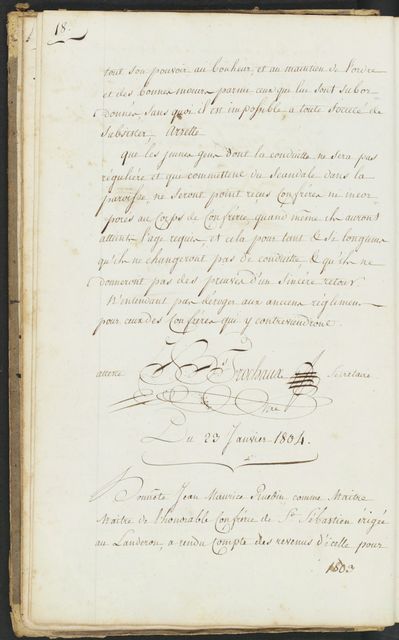 18.
tout son pouvoir au bonheur, et au maintien de l'ordre
et des bonnes mœurs parmis ceux que lui sont subor
donnés, sans quoi il est impossible a toute société de
subsister. Arrette
que les jeunes gens dont la conduitte ne sera pas
reguliére et que commettent du Scandale dans la
paroisse, ne seront point reçus Confréres ni incor
porés au Corps de Confrérie, quand même ils auront
atteint l'age requis, et cela pour tant & si longtems
qu'ils ne changeront pas de conduitte, & qu'ils ne
donneront pas des preuves d'un sincére retour.
N'entendant pas déroger aux anciens réglemens
pour ceux des Confréres qui y contreviendront.
atteste
Frochaux
Secretaire
Du 23 Janvier 1804.
Honnéte Jean Maurice comme Maitre
Maitre de l'honorable Confrérie de St. Sébastien érigée
au Landeron, a rendu Compte des revenus d'icelle pour
1803